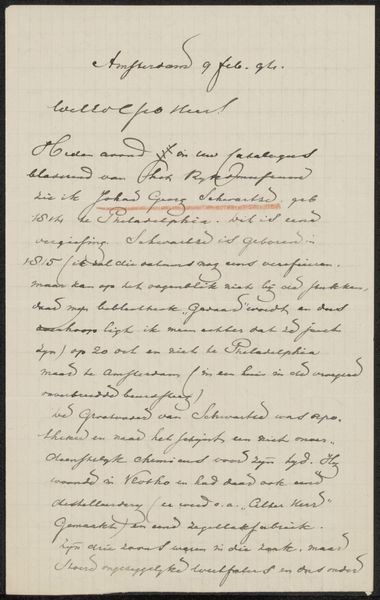 Amsterdam 9 feb. 94.
Heden avond in uw Catalogus
bladerend van het Ryksmuseum
zie ik Johan Georg Schwartze geb
1814 te Philadelphia. Dit is eene
vergissing. Schwartze is geboren in
1815 (
maar kan op het oogenblik niet bij de stukken,
daar mijn bibliotheek wordt en dus
ik meen echter dat ze juist
zijn) op 20 oct en niet te Philadelphia
maar te Amsterdam (in een huis in de vroegere
De Grootvader van Schwartze was apo-
theker en naar het schijnt een niet onver-
dienstelijk chemicus voor zijn tijd. Hij
woonde in Vlotho en had daar ook eene
destilleerderij (er werd o.a. "Alter Herr"
Gemaakt) en eene zegellakfabriek.
Zijn drie zoons waren in die zaak. maar
en dus onder